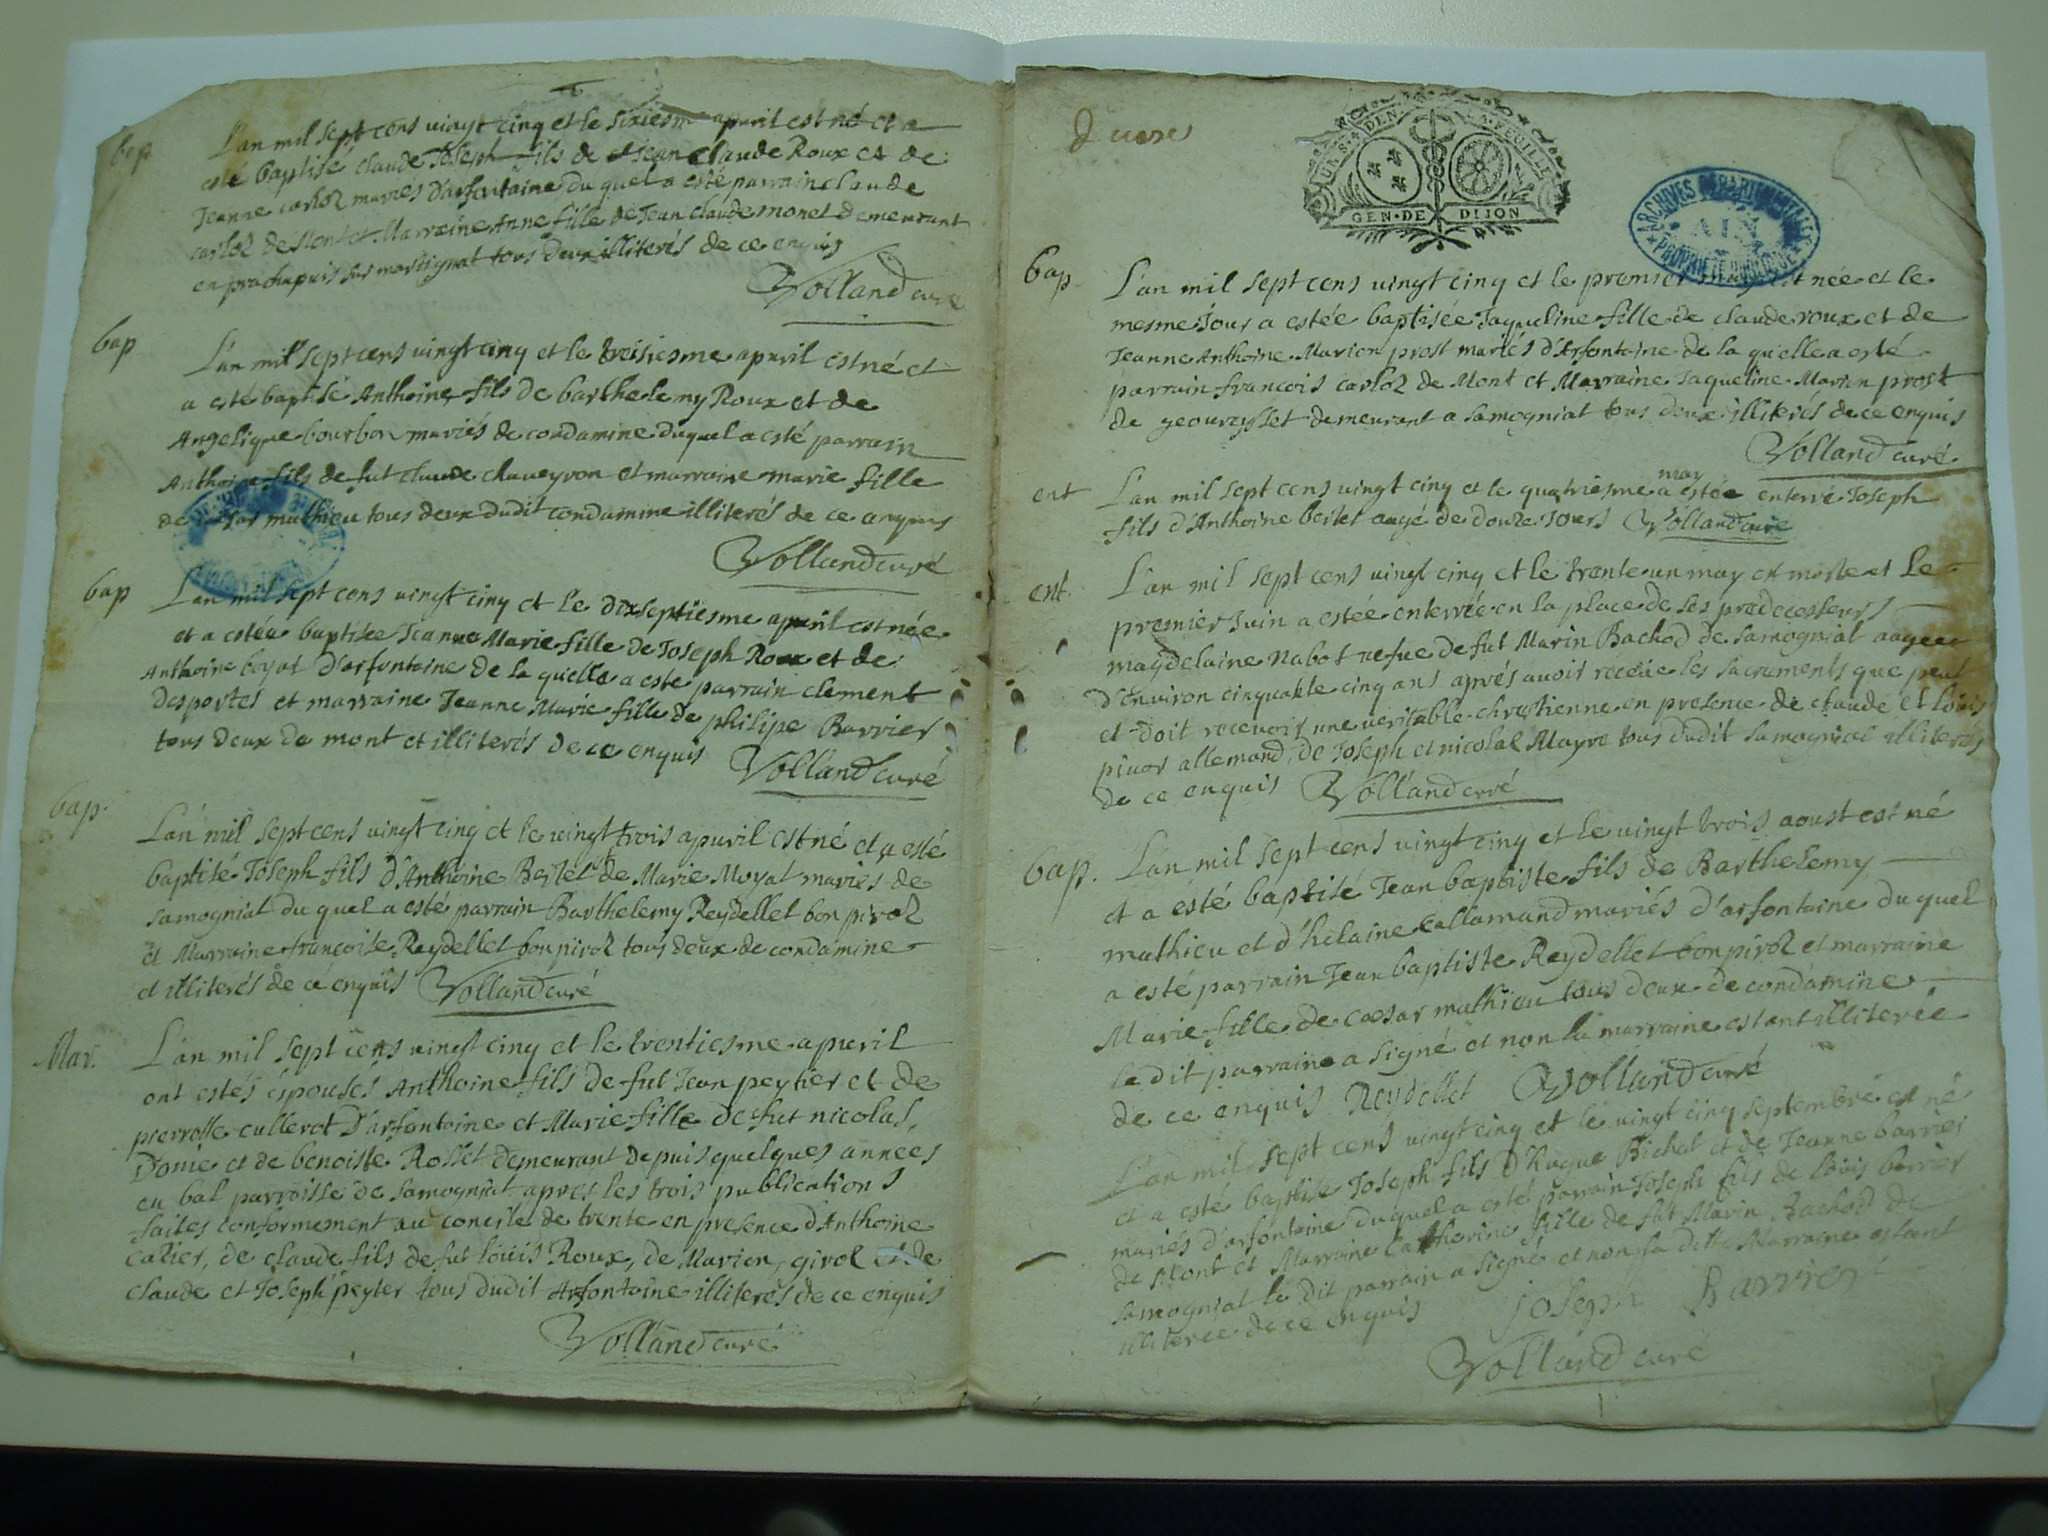 bap
L'an mil sept cens vingt cinq et le sixiesme apuril est né et a
esté baptisé Claude Joseph fils de Jean Claude Roux et de
Jeanne carloz mariés d'arfontaine du quel a esté parrain claude
carloz de Mont et Marraine Anne fille de Jean claude monet demeurant
en depuis sus martignat tous deux illiterés de ce enquis
Volland curé
bap
L'an mil sept cens vingt cinq et le treisiesme apuril est né et
a esté baptisé Anthoine fils de barthelemy Roux et de
Angelique bourbon mariés de condamine duquel a esté parrain
Anthoine fils de fut claude chaveyron et marraine marie fille
de mathieu tous deux dudit condamine illiterés de ce enquis
Volland curé
bap
L'an mil sept cens vingt cinq et le dixseptiesme apuril est née
et a estée baptisée Jeanne Marie fille de Joseph Roux et de
Anthoine d'arfontaine de la quelle a esté parrain clement
desportes et marraine Jeanne Marie fille de philipe Barrier
tous deux de mont et illiterés de ce enquis Volland curé
bap.
L'an mil sept cens vingt cinq et le vingt trois apuril est né et a esté
baptisé Joseph fils d'Anthoine Beitet de Marie Moyat mariés de
samogniat du quel a esté parrain Barthelemy Reydellet bon piroz
et Marraine francoise Reydellet bon piroz tous deux de condamine
et illiterés de ce enquis Volland curé
Mar.
L'an mil sept cens vingt cinq et le trentiesme apuril
ont estés épousés Anthoine fils de fut Jean peytier et de
pierrotte cullerot D'arfontaine et Marie fille de fut nicolas
Donie et de benoiste Rosset demeurant depuis quelques années
en bal parroisse de samogniat apres les trois publications
faites conformement au concile de trente en presence d'Anthoine
calier, de claude fils de fut loüis Roux, de Marion girol et de
claude et Joseph peytier tous dudit Arfontaine illiterés de ce enquis
Volland curé
UN S. 4 DEN. LA FEUILLE
GEN · DE DIJON
ARCHIVES DÉPARTEMENTALES
AIN
PROPRIÉTÉ PUBLIQUE
bap.
L'an mil sept cens vingt cinq et le premier est née et le
mesme Jour a estée baptisée Jaqueline fille de claude roux et de
Jeanne Anthoine Marion prost mariés d'Arfontaine de la quelle a esté
parrain francois carloz de Mont et Marraine Jaqueline Marion prost
de geovraysset demeurant a samogniat tous deux illiterés de ce enquis
Volland curé
ent
L'an mil sept cens vingt cinq et le quatriesme may a estée enterré Joseph
fils d'Anthoine beitet aagé de douze Jours Volland curé
ent.
L'an mil sept cens vingt cinq et le trente un may est morte et Le
premier Juin a estée enterrée en la place de ses predecesseurs
magdelaine Nabot vefue de fut Marin Bachod de samogniat aagée
d'environ cinquante cinq ans aprés avoir receüe les sacrements que peut
et doit recevoir une veritable chrestienne en presence de claude et loüis
pivor allemand, de Joseph et nicolas Mayre tous dudit samogniat illiterés
de ce enquis Volland curé
bap.
L'an mil sept cens vingt cinq et le vingt trois aoust est né
et a esté baptisé Jean baptiste fils de Barthelemy
mathieu et d'hilaine callamand mariés d'arfontaine du quel
a esté parrain Jean baptiste Reydellet bon piroz et marraine
Marie fille de caesar mathieu tous deux de condamine
le dit parrain a signé et non la marraine estant illiterée
de ce enquis Reydellet Volland curé
L'an mil sept cens vingt cinq et le vingt cinq septembre est né
et a esté baptisé Joseph fils d'Hugue Bichat et de Jeanne barrier
mariés d'arfontaine duquel a esté parrain Joseph fils de loüis barrier
de Mont et Marraine Catherine fille de fut Marin Bachod de
samogniat le dit parrain a signé et non la ditte Marraine estant
illiterée de ce enquis Joseph Barrier
Volland curé